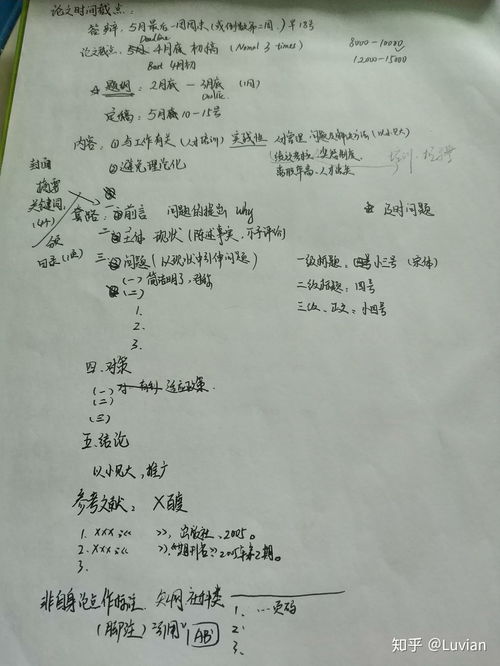 论文时间截点:
答辩, 5月最后一周周末(或倒数第二周)早18号
Deadline
论文截点: 4月底 初稿 (Normal 3 times) 8000-10000
Best 4月初 12000-15000
题纲: 2月底 - 3月底 (1月)
定稿: 5月底 10-15号
内容, ①与工作有关 (人才培训) 实践性 问题及解决方法 (以小见大)
绩效考核, 制度
培训
②避免理论化
离职率高, 人才流失
封面
摘要
关键词,
(4个)
目录
套路: 一 前言 问题的提出 why 及时问题
二 主体 现状 (陈述事实, 不予评价)
三 问题 (以现状中引伸问题) 一级标题: 小三号 (宋体)
(一) 简洁明了, 二级标题: 四号
(二) 三级、正文: 小四号
1.
2.
3.
四. 对策
(一) 对 有针 适应政策.
(二)
(三)
五. 结论
以小见大, 推广
参考文献: X百度
1. xxx :《 》, 出版社, 2005。
2. xxx :《 》, 《期刊名》2005年第2期。
3.
非自身论点作标注. 知网 社科类
(脚注) 引用 AB 1. ...页码
2.
3.
知乎 @Luvian